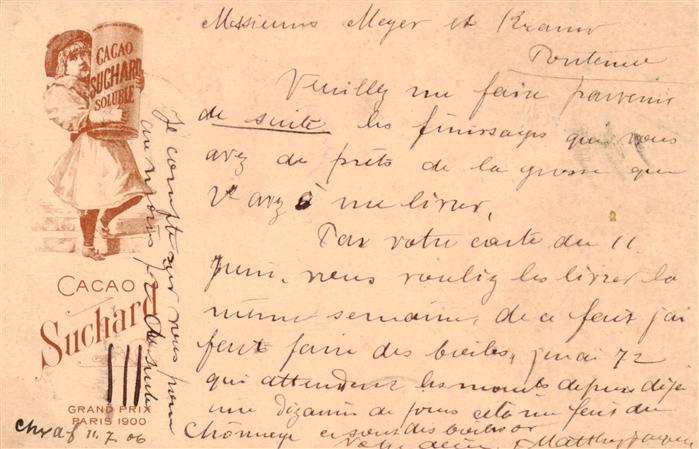 CACAO
SUCHARD
SOLUBLE
CACAO
Suchard
GRAND PRIX
PARIS 1900
11.7.06
Messieurs Meyer et
Veuillez me faire parvenir
de suite les finissages que vous
avez de prêts de la grosse que
v. avez à me livrer,
Par votre carte du 11
Juin, vous vouliez les livrer la
même semaine, de ce fait j'ai
fait faire des boîtes, j'en ai 72
qui attendent les mouvts depuis déjà
une dizaine de jours cela me fait du
chômage
Je compte sur vous pour
au moins